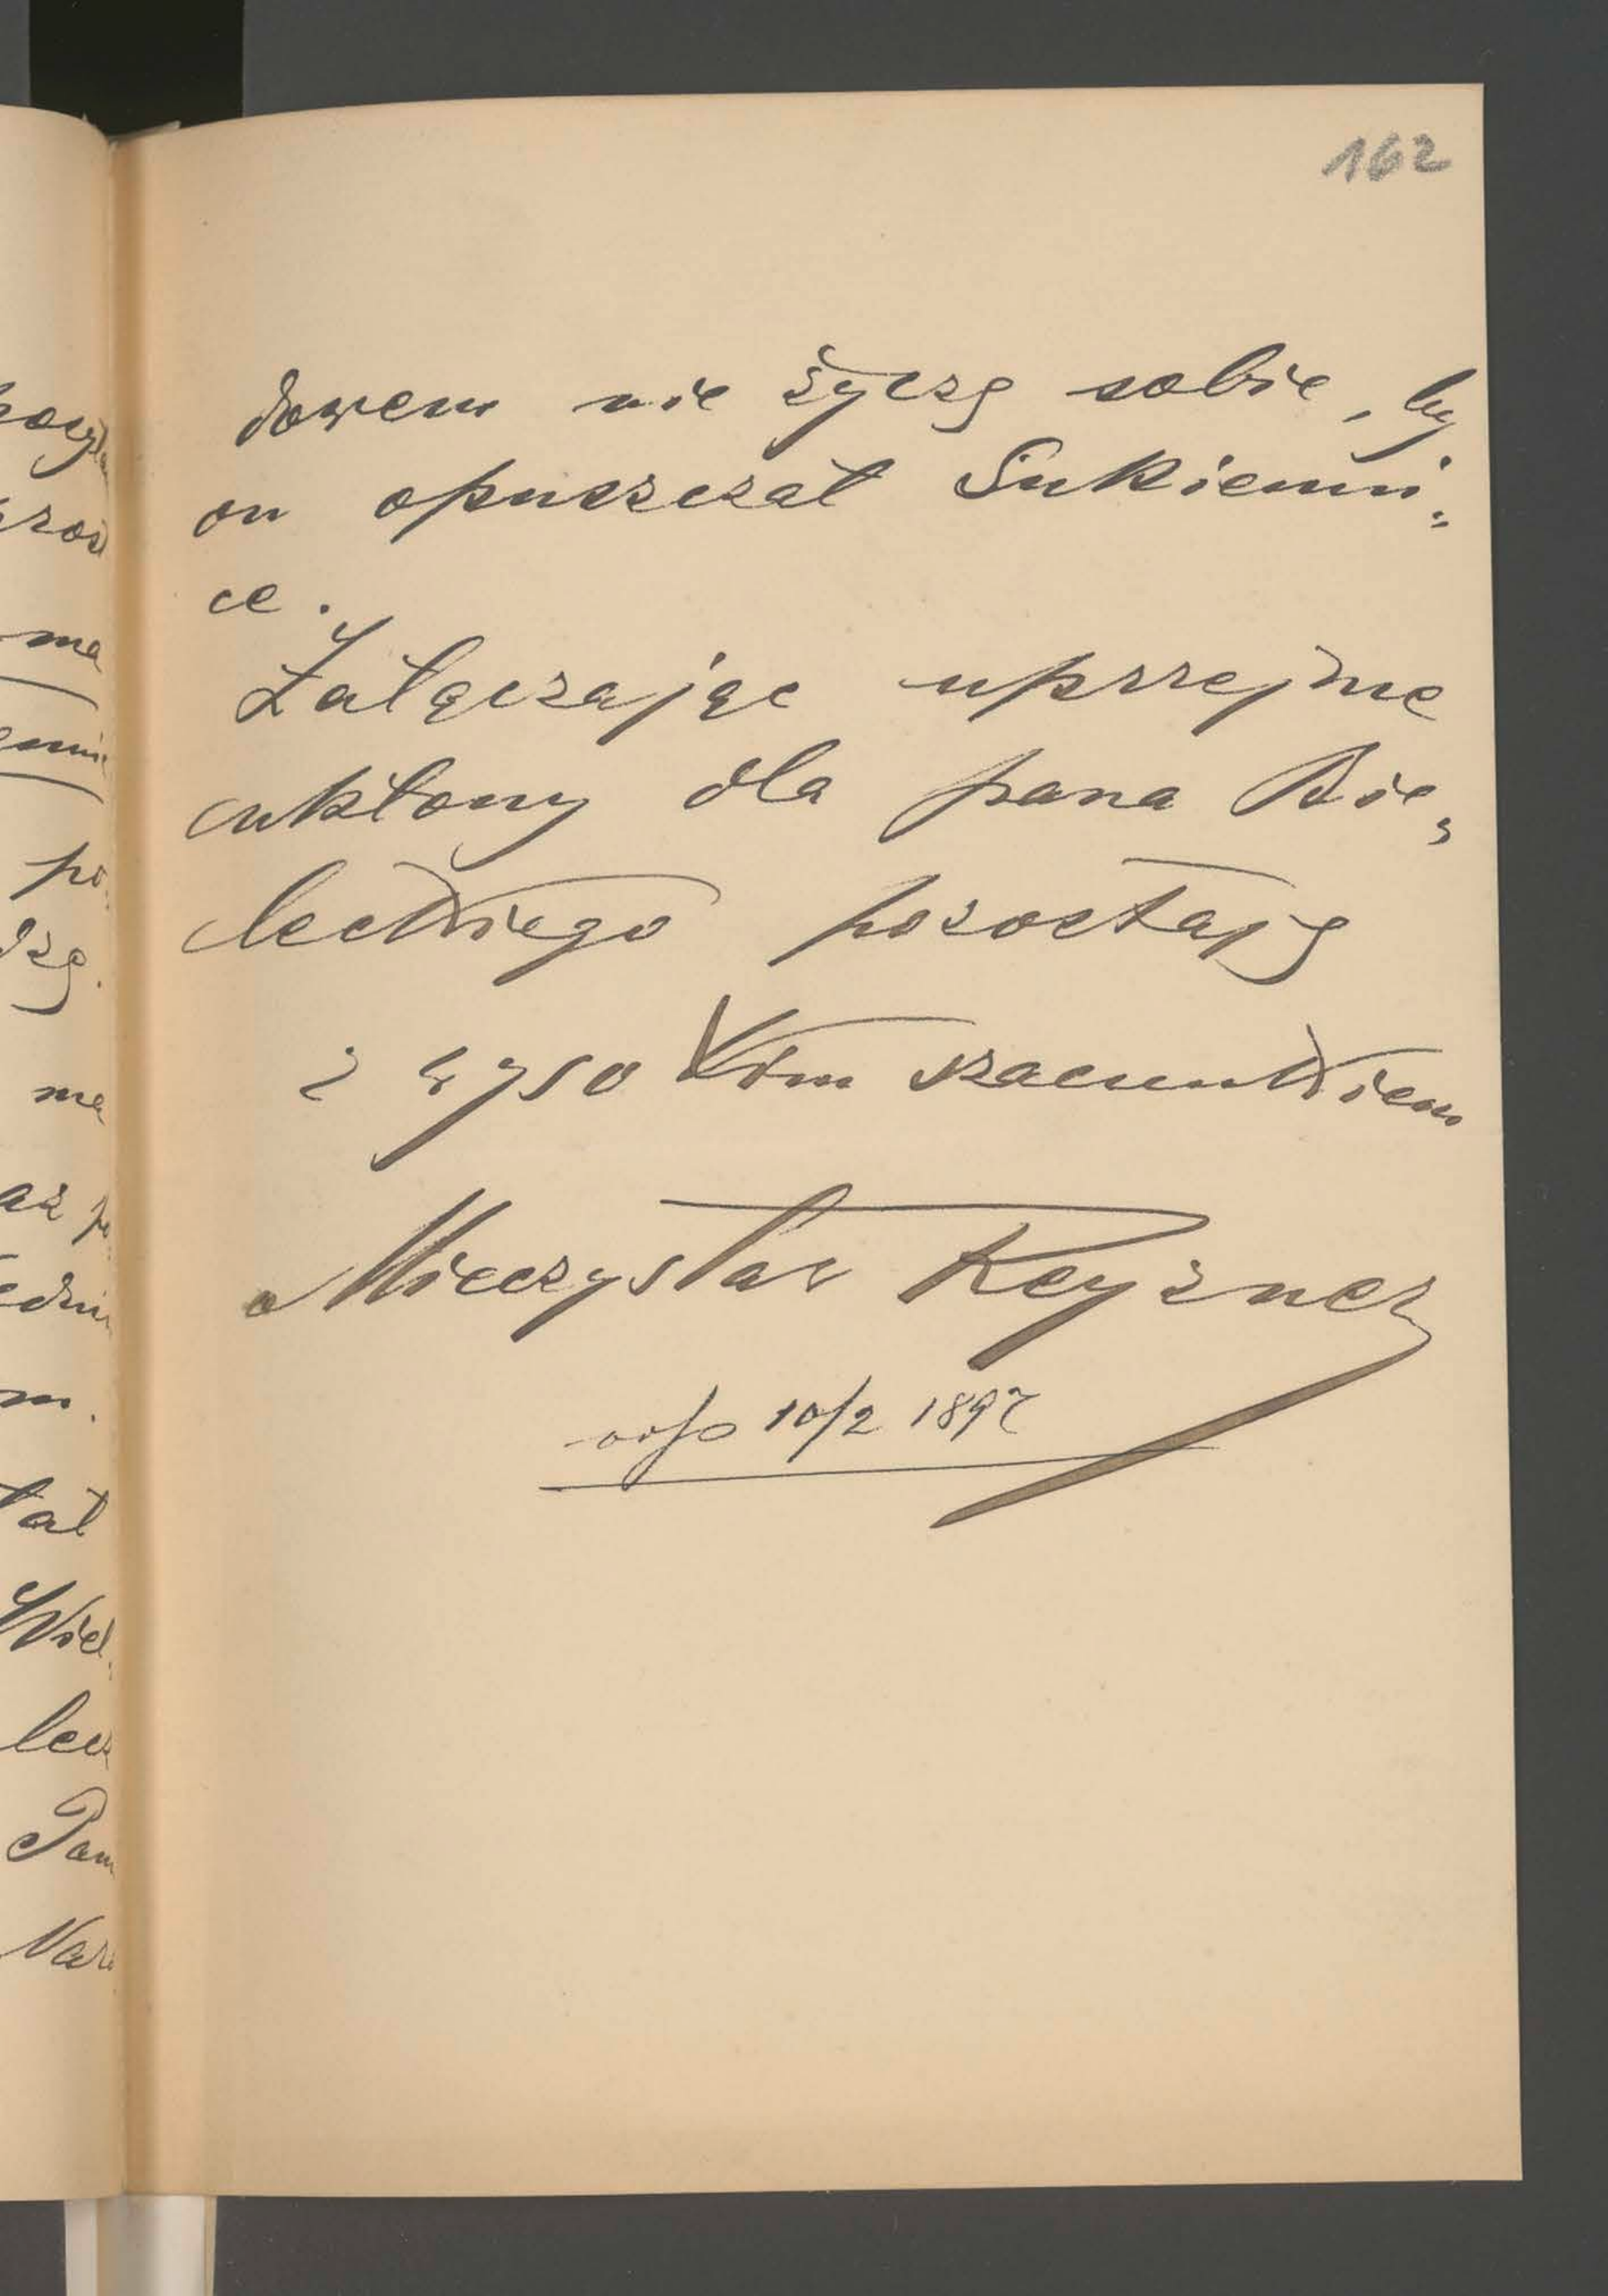 162
dowem nie życzę sobie, by
on opuszczał Sukienni„
ce.
Załączając uprzejme
ukłony dla pana Bie„
leckiego pozostaję
z wysokim szacunkiem
Mieczysław Reyzner
10/2 1897
ma
po
dzę.
ma
m.
tał